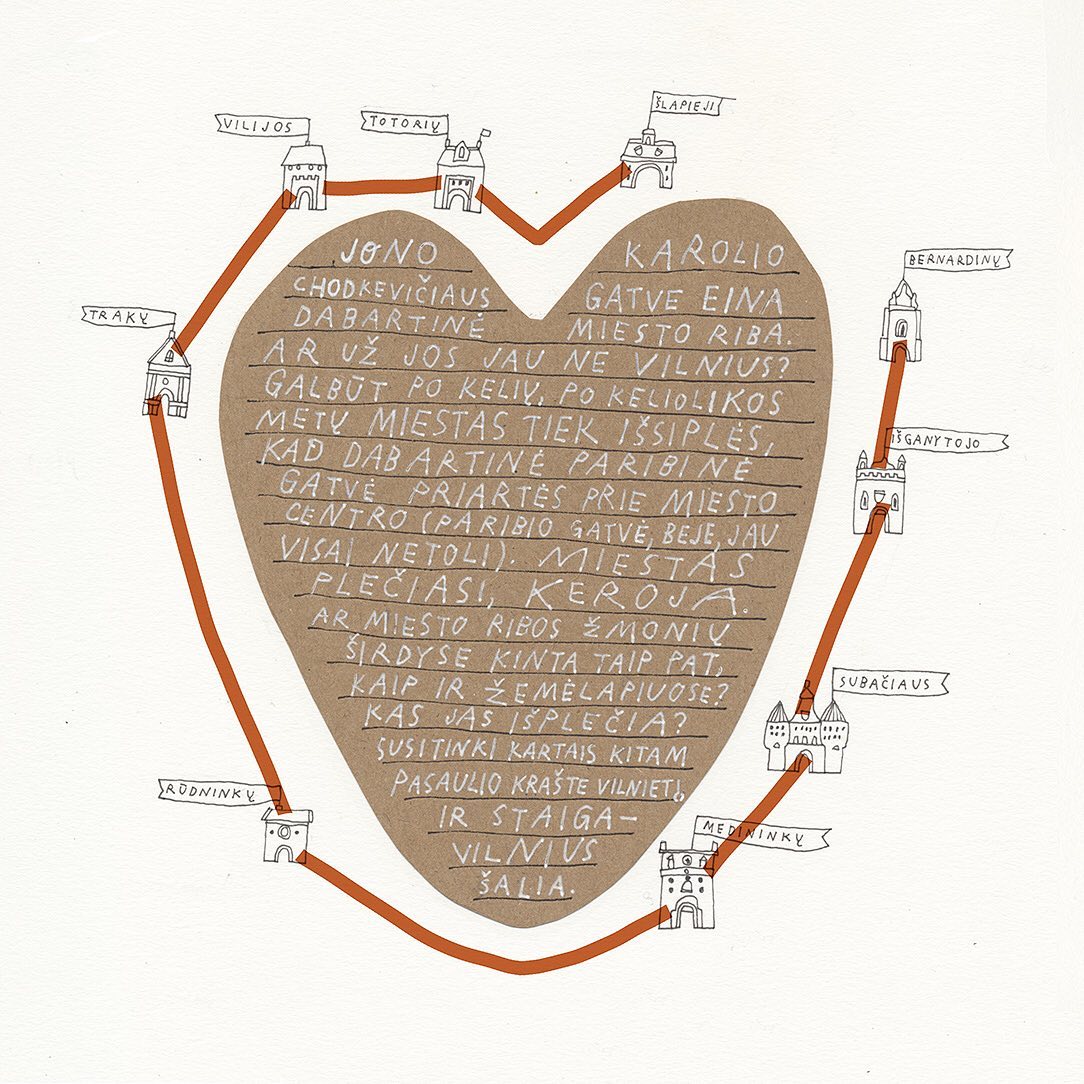 ŠLAPIEJI
VILIJOS
TOTORIŲ
BERNARDINŲ
TRAKŲ
IŠGANYTOJO
SUBAČIAUS
RŪDNINKŲ
MEDININKŲ
JONO KAROLIO
CHODKEVIČIAUS GATVE EINA
DABARTINĖ MIESTO RIBA.
AR UŽ JOS JAU NE VILNIUS?
GALBŪT PO KELIŲ, PO KELIOLIKOS
METŲ MIESTAS TIEK IŠSIPLĖS,
KAD DABARTINĖ PARIBINĖ
GATVĖ PRIARTĖS PRIE MIESTO
CENTRO (PARIBIO GATVĖ, BEJE, JAU
VISAI NETOLI). MIESTAS
PLEČIASI, KEROJA.
AR MIESTO RIBOS ŽMONIŲ
ŠIRDYSE KINTA TAIP PAT,
KAIP IR ŽEMĖLAPIUOSE?
KAS JAS IŠPLEČIA?
SUSITINKI KARTAIS KITAM
PASAULIO KRAŠTE VILNIETĮ,
IR STAIGA–
VILNIUS
ŠALIA.